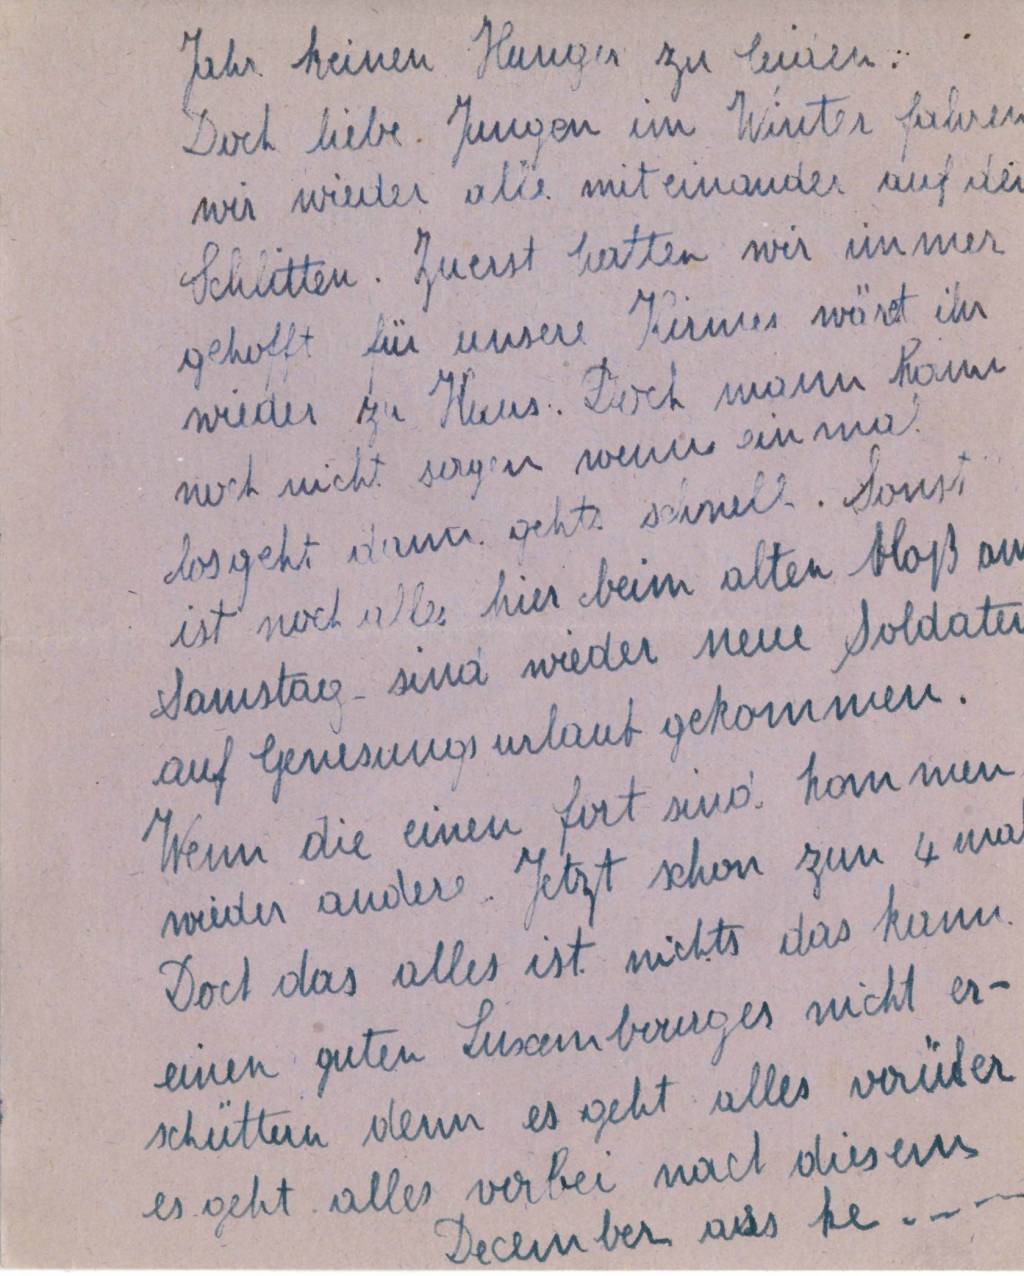 Jahr keinen Hunger zu leiden.
Doch liebe Jungen im Winter fahren
wir wieder alle miteinander auf den
Schlitten. Zuerst hatten wir immer
gehofft für unsere Kirmes wäret ihr
wieder zu Haus. Doch mann kann
noch nicht sagen wenn einmal
losgeht dann gehts schnell. Sonst
ist noch alles hier beim alten bloß am
Samstag sind wieder neue Soldaten
auf Genesungsurlaub gekommen.
Wenn die einen fort sind kommen
wieder andere. Jetzt schon zum 4 mal
Doch das alles ist nichts das kann
einen guten Luxembourger nicht er-
schüttern denn es geht alles vorüber
es geht alles vorbei nach diesem
December ... - - -